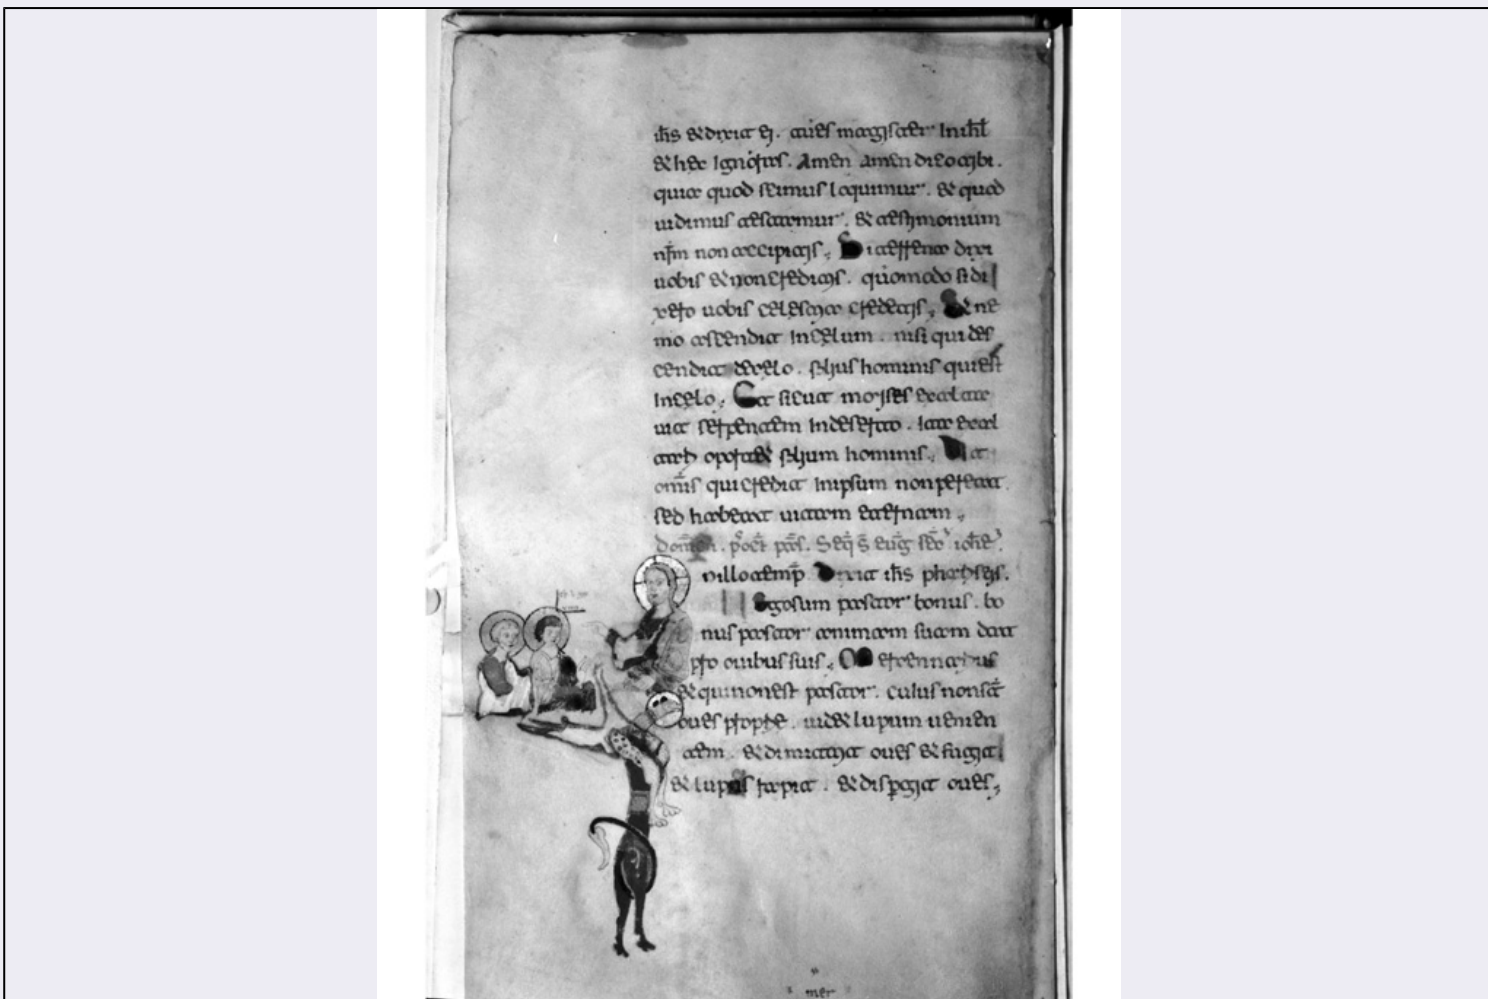 ih̅s & dixit ei. tu es magister In ihl̅
& hec Ignoras. Amen amen dico tibi.
quia quod scimus loquimur. & quod
uidimus testamur. & testimonium
nr̅m non accipitis. Si terrena dixi
uobis & non creditis. quomodo si di
xero uobis celestia credetis. Et ne
mo ascendit In celum. nisi qui des
cendit de celo. filius hominis qui est
In celo. Et sicut moyses exalta
uit serpentem In deserto. Ita exal
tari oportet filium hominis. Vt
omis̅ qui credit In ipsum non pereat.
sed habeat uitam eternam.
Seq̅ s̅ eug̅ sec̅ ioh̅e
n illo temp̅. Dixit ih̅s phariseis.
Ego sum pastor bonus. bo
nus pastor animam suam dat
pro ouibus suis. Mercennarius
& qui non est pastor. cuius non s̅t
oues proprie. uidet lupum uenien
tem. & dimittit oues & fugit.
& lupus rapit. & dispergit oues.
mer